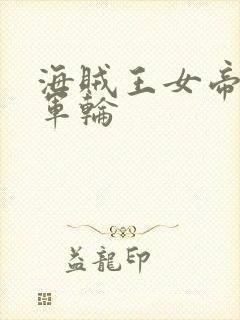 海贼王女帝
军輪
益龍印